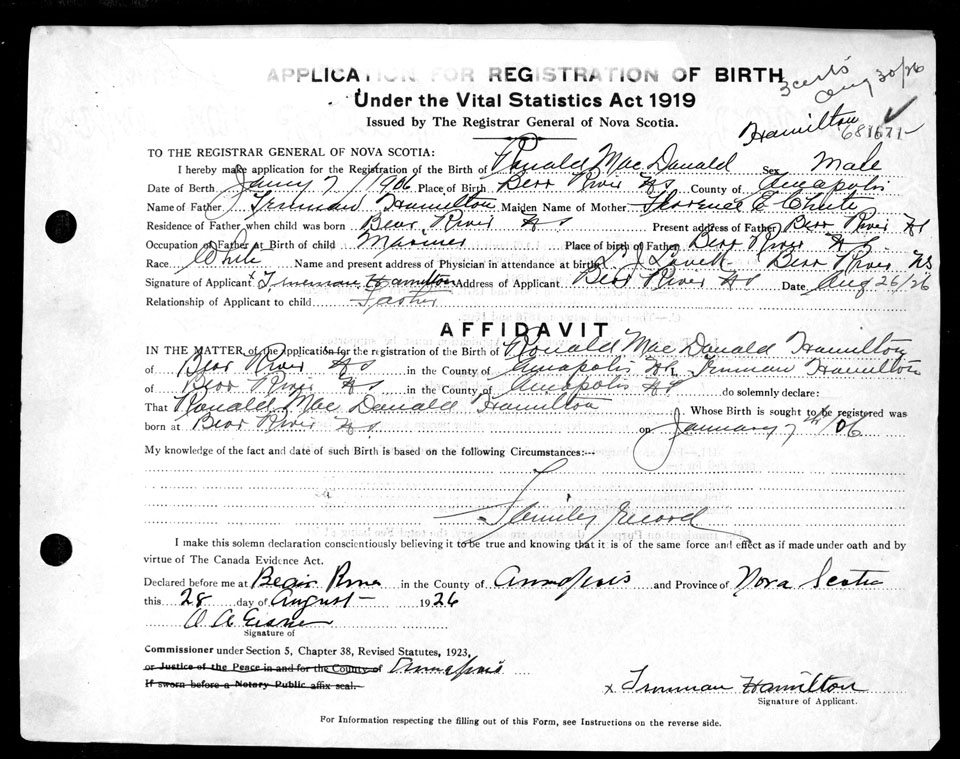 3 certs
Aug 30/26
APPLICATION FOR REGISTRATION OF BIRTH
Under the Vital Statistics Act 1919
Issued by The Registrar General of Nova Scotia.
Hamilton
TO THE REGISTRAR GENERAL OF NOVA SCOTIA:
I hereby make application for the Registration of the Birth of Ronald Mac Donald Sex Male
Date of Birth January 7/1906 Place of Birth Bear River NS County of Annapolis
Name of Father Truman Hamilton Maiden Name of Mother Florence E Chute
Residence of Father when child was born Bear River NS Present address of Father Bear River NS
Occupation of Father at Birth of child Mariner Place of birth of Father Bear River NS
Race White Name and present address of Physician in attendance at birth L J Lovett Bear River NS
Signature of Applicant x Truman Hamilton Address of Applicant Bear River NS Date Aug 26/26
Relationship of Applicant to child Father
AFFIDAVIT
IN THE MATTER of the application for the registration of the Birth of Ronald Mac Donald Hamilton
of Bear River NS in the County of Annapolis NS I, Truman Hamilton
of Bear River NS in the County of Annapolis NS do solemnly declare:
That Ronald Mac Donald Hamilton Whose Birth is sought to be registered was
born at Bear River NS on January 7th/06
My knowledge of the fact and date of such Birth is based on the following Circumstances:---
Family record
I make this solemn declaration conscientiously believing it to be true and knowing that it is of the same force and effect as if made under oath and by
virtue of The Canada Evidence Act.
Declared before me at Bear River in the County of Annapolis and Province of Nova Scotia
this 28 day of August 1926
Signature of
Commissioner under Section 5, Chapter 38, Revised Statutes, 1923,
or Justice of the Peace in and for the County of Annapolis
If sworn before a Notary Public affix seal.
x Truman Hamilton
Signature of Applicant.
For Information respecting the filling out of this Form, see Instructions on the reverse side.